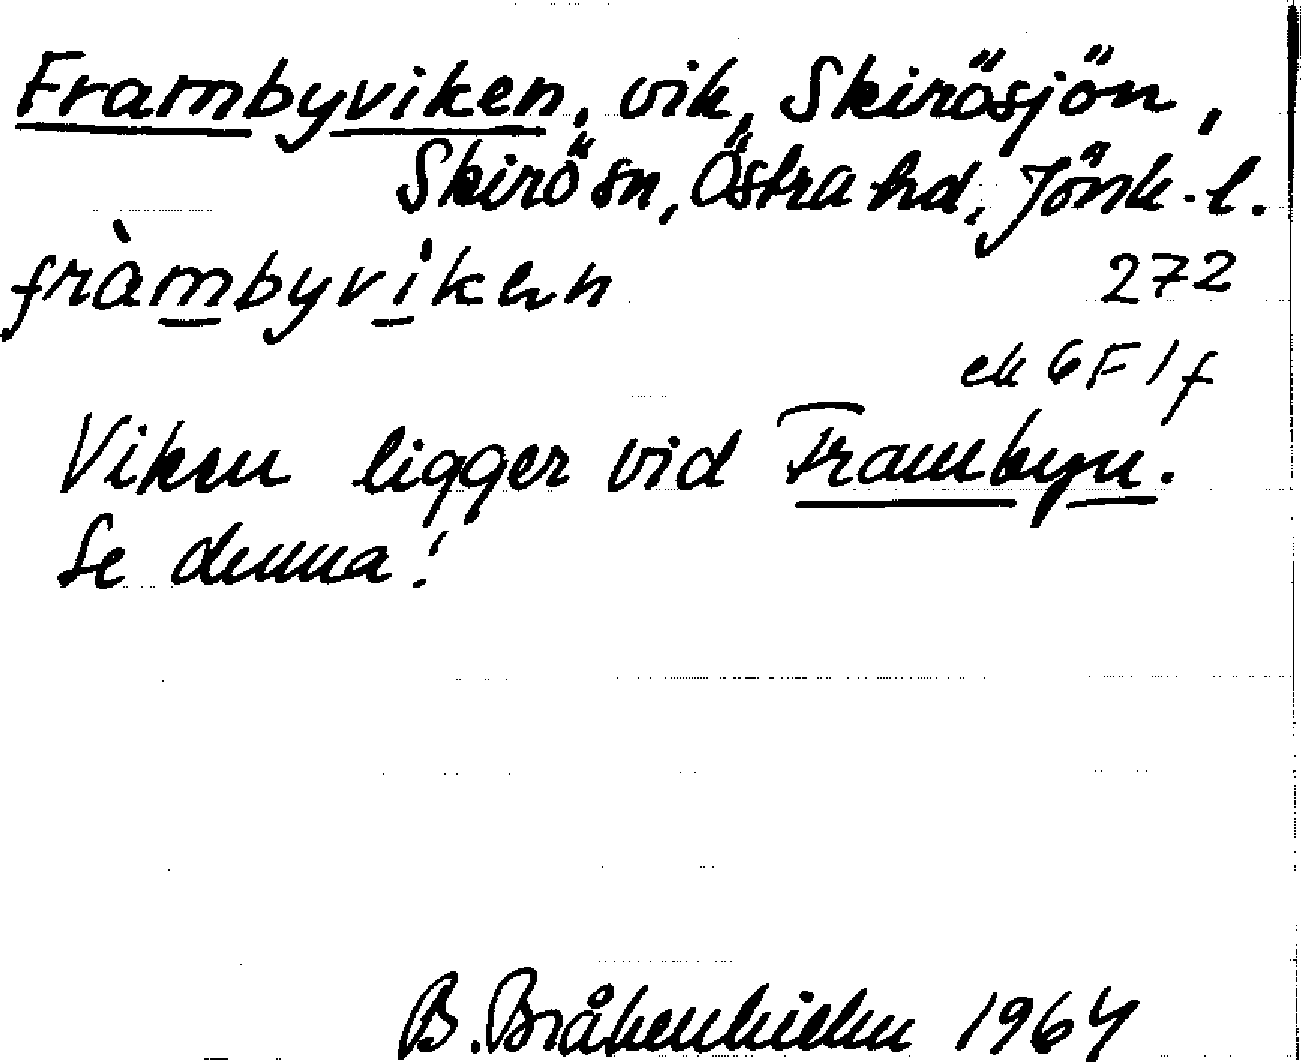 Frambyviken, vik, Skirösjön,
Skirö sn, Östra hd, Jönk. l.
fràmbyvikhn
272
ek 6F 1 f
Viken ligger vid Frambyn.
Se denna!
B. Bråkenhielm 1964